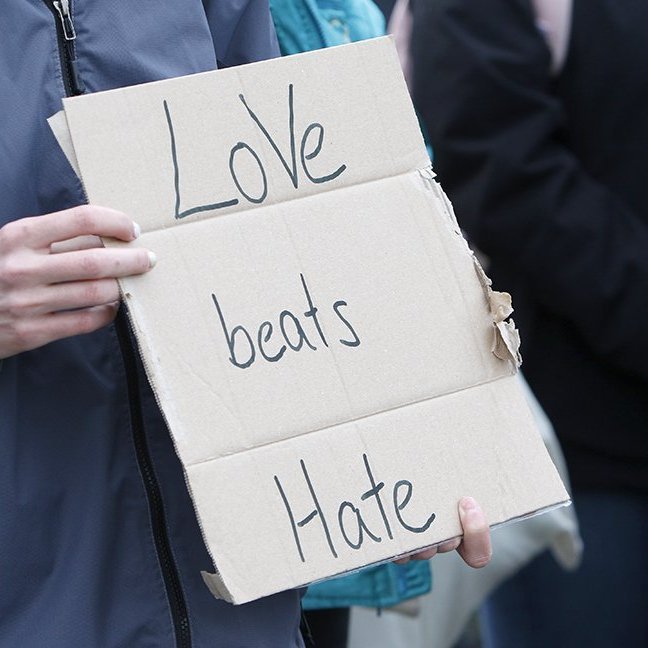 LoVe
beats
Hate